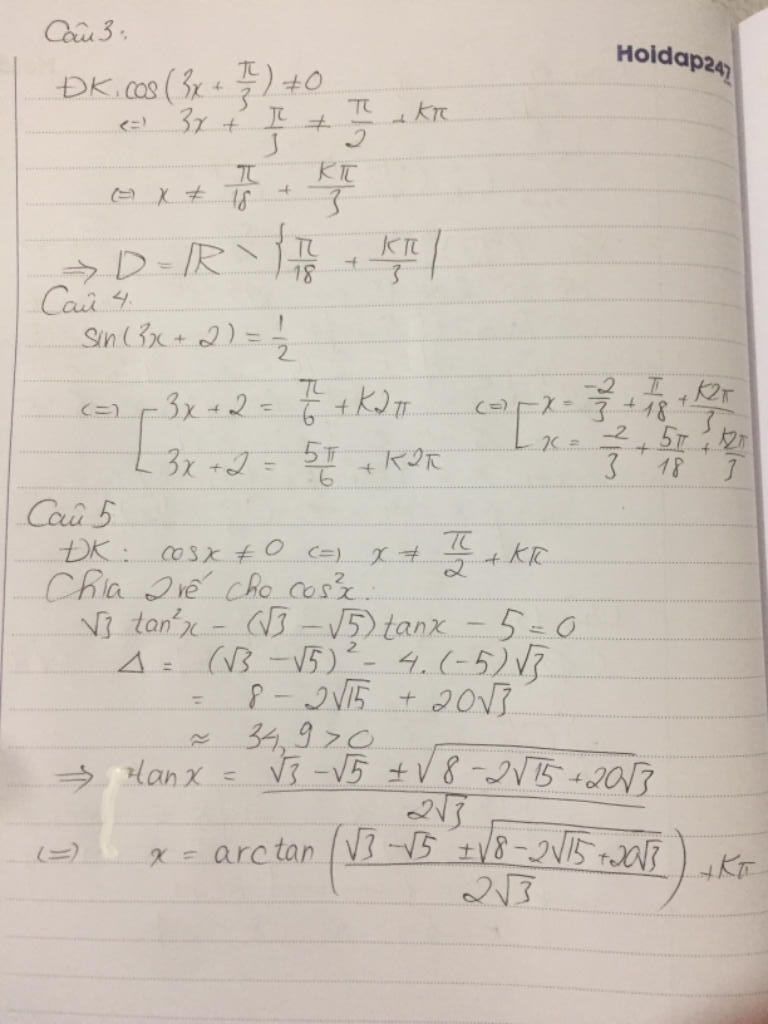 Câu 3:
Hoidap247
ĐK: cos(3x + π/3) ≠ 0
<=> 3x + π/3 ≠ π/2 + kπ
<=> x ≠ π/18 + kπ/3
=> D = R \ {π/18 + kπ/3}
Câu 4.
sin(3x + 2) = 1/2
<=> [ 3x + 2 = π/6 + k2π <=> [ x = -2/3 + π/18 + k2π/3
3x + 2 = 5π/6 + k2π x = -2/3 + 5π/18 + k2π/3
Câu 5
ĐK: cosx ≠ 0 <=> x ≠ π/2 + kπ
Chia 2 vế cho cos²x:
√3 tan²x - (√3 - √5)tanx - 5 = 0
Δ = (√3 - √5)² - 4.(-5)√3
= 8 - 2√15 + 20√3
≈ 34,9 > 0
=> tanx = (√3 - √5 ± √(8 - 2√15 + 20√3))/(2√3)
<=> x = arctan((√3 - √5 ± √(8 - 2√15 + 20√3))/(2√3)) + kπ